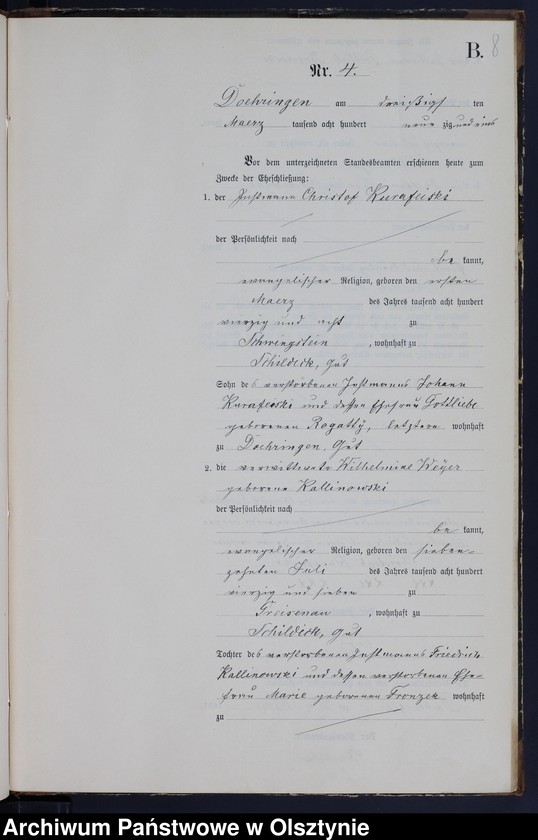 B. 8
Nr. 4.
Doehringen am dreißigs ten
Maerz tausend acht hundert neun zig und eins
Vor dem unterzeichneten Standesbeamten erschienen heute zum
Zwecke der Eheschließung:
1. der Instmann Christof Kurafeiski
der Persönlichkeit nach
be kannt,
evangelischer Religion, geboren den ersten
Maerz des Jahres tausend acht hundert
vierzig und acht zu
Schwirgstein, wohnhaft zu
Schildeck, Gut
Sohn des verstorbenen Instmanns Johann
Kurafeiski und dessen Ehefrau Gottliebe
geborenen Rogatty, letztere wohnhaft
zu Doehringen, Gut
2. die verwittwete Wilhelmine Weyer
geborene Kallinowski
der Persönlichkeit nach
be kannt,
evangelischer Religion, geboren den sieben-
zehnten Juli des Jahres tausend acht hundert
vierzig und sieben zu
Greisenau, wohnhaft zu
Schildeck, Gut
Tochter des verstorbenen Instmanns Friedrich
Kallinowski und dessen verstorbenen Ehe-
frau Marie geborenen Fronzek wohnhaft
zu
Archiwum Państwowe w Olsztynie